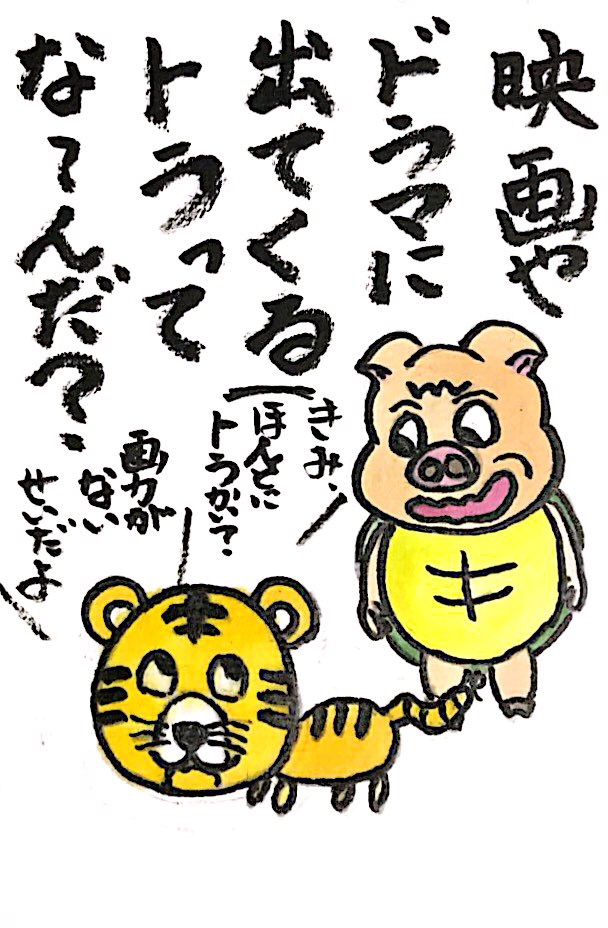 映画や
ドラマに
出てくる
トラって
な〜んだ？
きみ、
ほんとに
トラかい？
画力が
ない
せいだよ